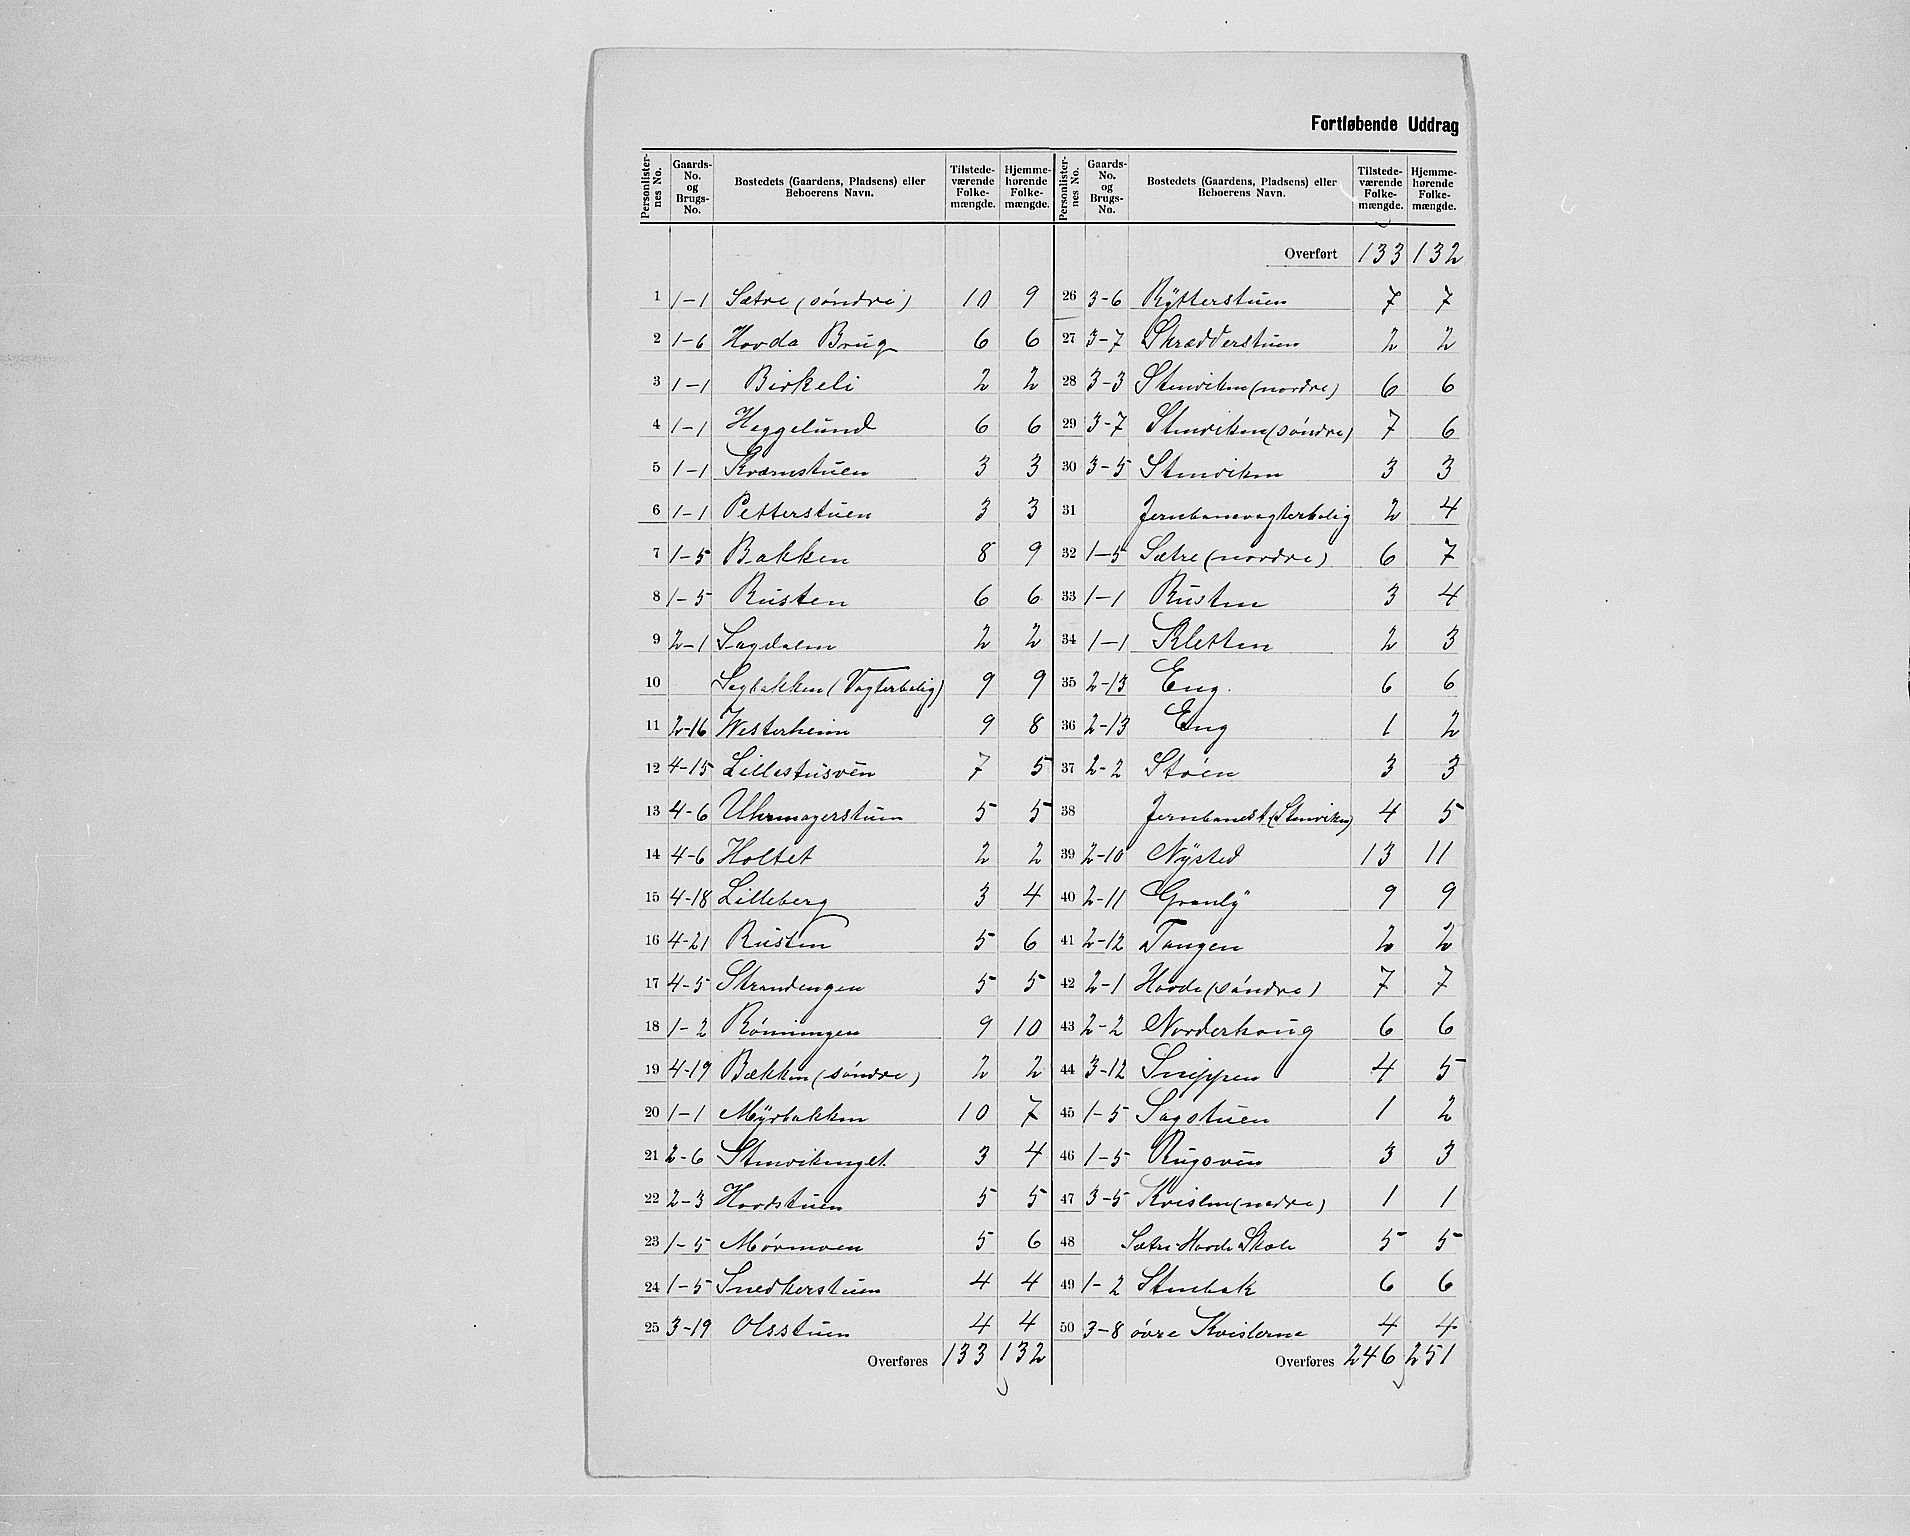 Fortløbende Uddrag
Personlister-nes No. | Gaards-No. og Brugs-No. | Bostedets (Gaardens, Pladsens) eller Beboerens Navn. | Tilstede-værende Folke-mængde. | Hjemme-hørende Folke-mængde.
1 1-1 Sætre (söndre) 10 9
2 1-6 Hovda Brug 6 6
3 1-1 Birkeli 2 2
4 1-1 Heggelund 6 6
5 1-1 Kværnstuen 3 3
6 1-1 Petterstuen 3 3
7 1-5 Bakken 8 9
8 1-5 Rusten 6 6
9 2-1 Sagdalen 2 2
10 Sagbakken (Vogterbolig) 9 9
11 2-16 Westerheim 9 8
12 4-15 Lillestusveen 7 5
13 4-6 Uhrmagerstuen 5 5
14 4-6 Holtet 2 2
15 4-18 Lilleberg 3 4
16 4-21 Rusten 5 6
17 4-5 Strandengen 5 5
18 1-2 Rönningen 9 10
19 4-19 Bækken (söndre) 2 2
20 1-1 Myrbakken 10 7
21 2-6 Stenvikenget 3 4
22 2-3 Hovdstuen 5 5
23 1-5 Mörmoen 5 6
24 1-5 Snedkerstuen 4 4
25 3-19 Olsstuen 4 4
Overføres 133 132
Personlister-nes No. | Gaards-No. og Brugs-No. | Bostedets (Gaardens, Pladsens) eller Beboerens Navn. | Tilstede-værende Folke-mængde. | Hjemme-hørende Folke-mængde.
Overført 133 132
26 3-6 Rytterstuen 7 7
27 3-7 Skrædderstuen 2 2
28 3-3 Stenviken (nordre) 6 6
29 3-7 Stenviken (söndre) 7 6
30 3-5 Stenviken 3 3
31 Jernbanevogterbolig 2 4
32 1-5 Sætre (nordre) 6 7
33 1-1 Rusten 3 4
34 1-1 Kletten 2 3
35 2-13 Eng. 6 6
36 2-13 Eng 1 2
37 2-2 Stöen 3 3
38 Jernbanest (Stenviken) 4 5
39 2-10 Nysted 13 11
40 2-11 Granly 9 9
41 2-12 Tangen 2 2
42 2-1 Hovde (söndre) 7 7
43 2-2 Norderhoug 6 6
44 3-12 Snippen 4 5
45 1-5 Sagstuen 1 2
46 1-5 Rugsveen 3 3
47 3-5 Kvislen (nedre) 1 1
48 Sætre-Hovde Skole 5 5
49 1-2 Stenbak 6 6
50 3-8 övre Kvislerne 4 4
Overføres 246 251